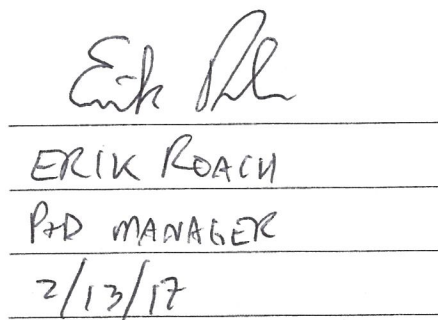 Erik
ERIK ROACH
P+D MANAGER
2/13/17